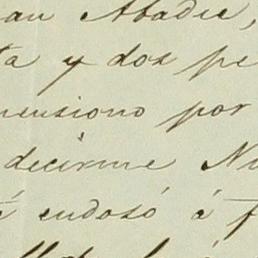 an Abadie,
ta y dos pe
mensiono por
decirme Nu
endosó á f